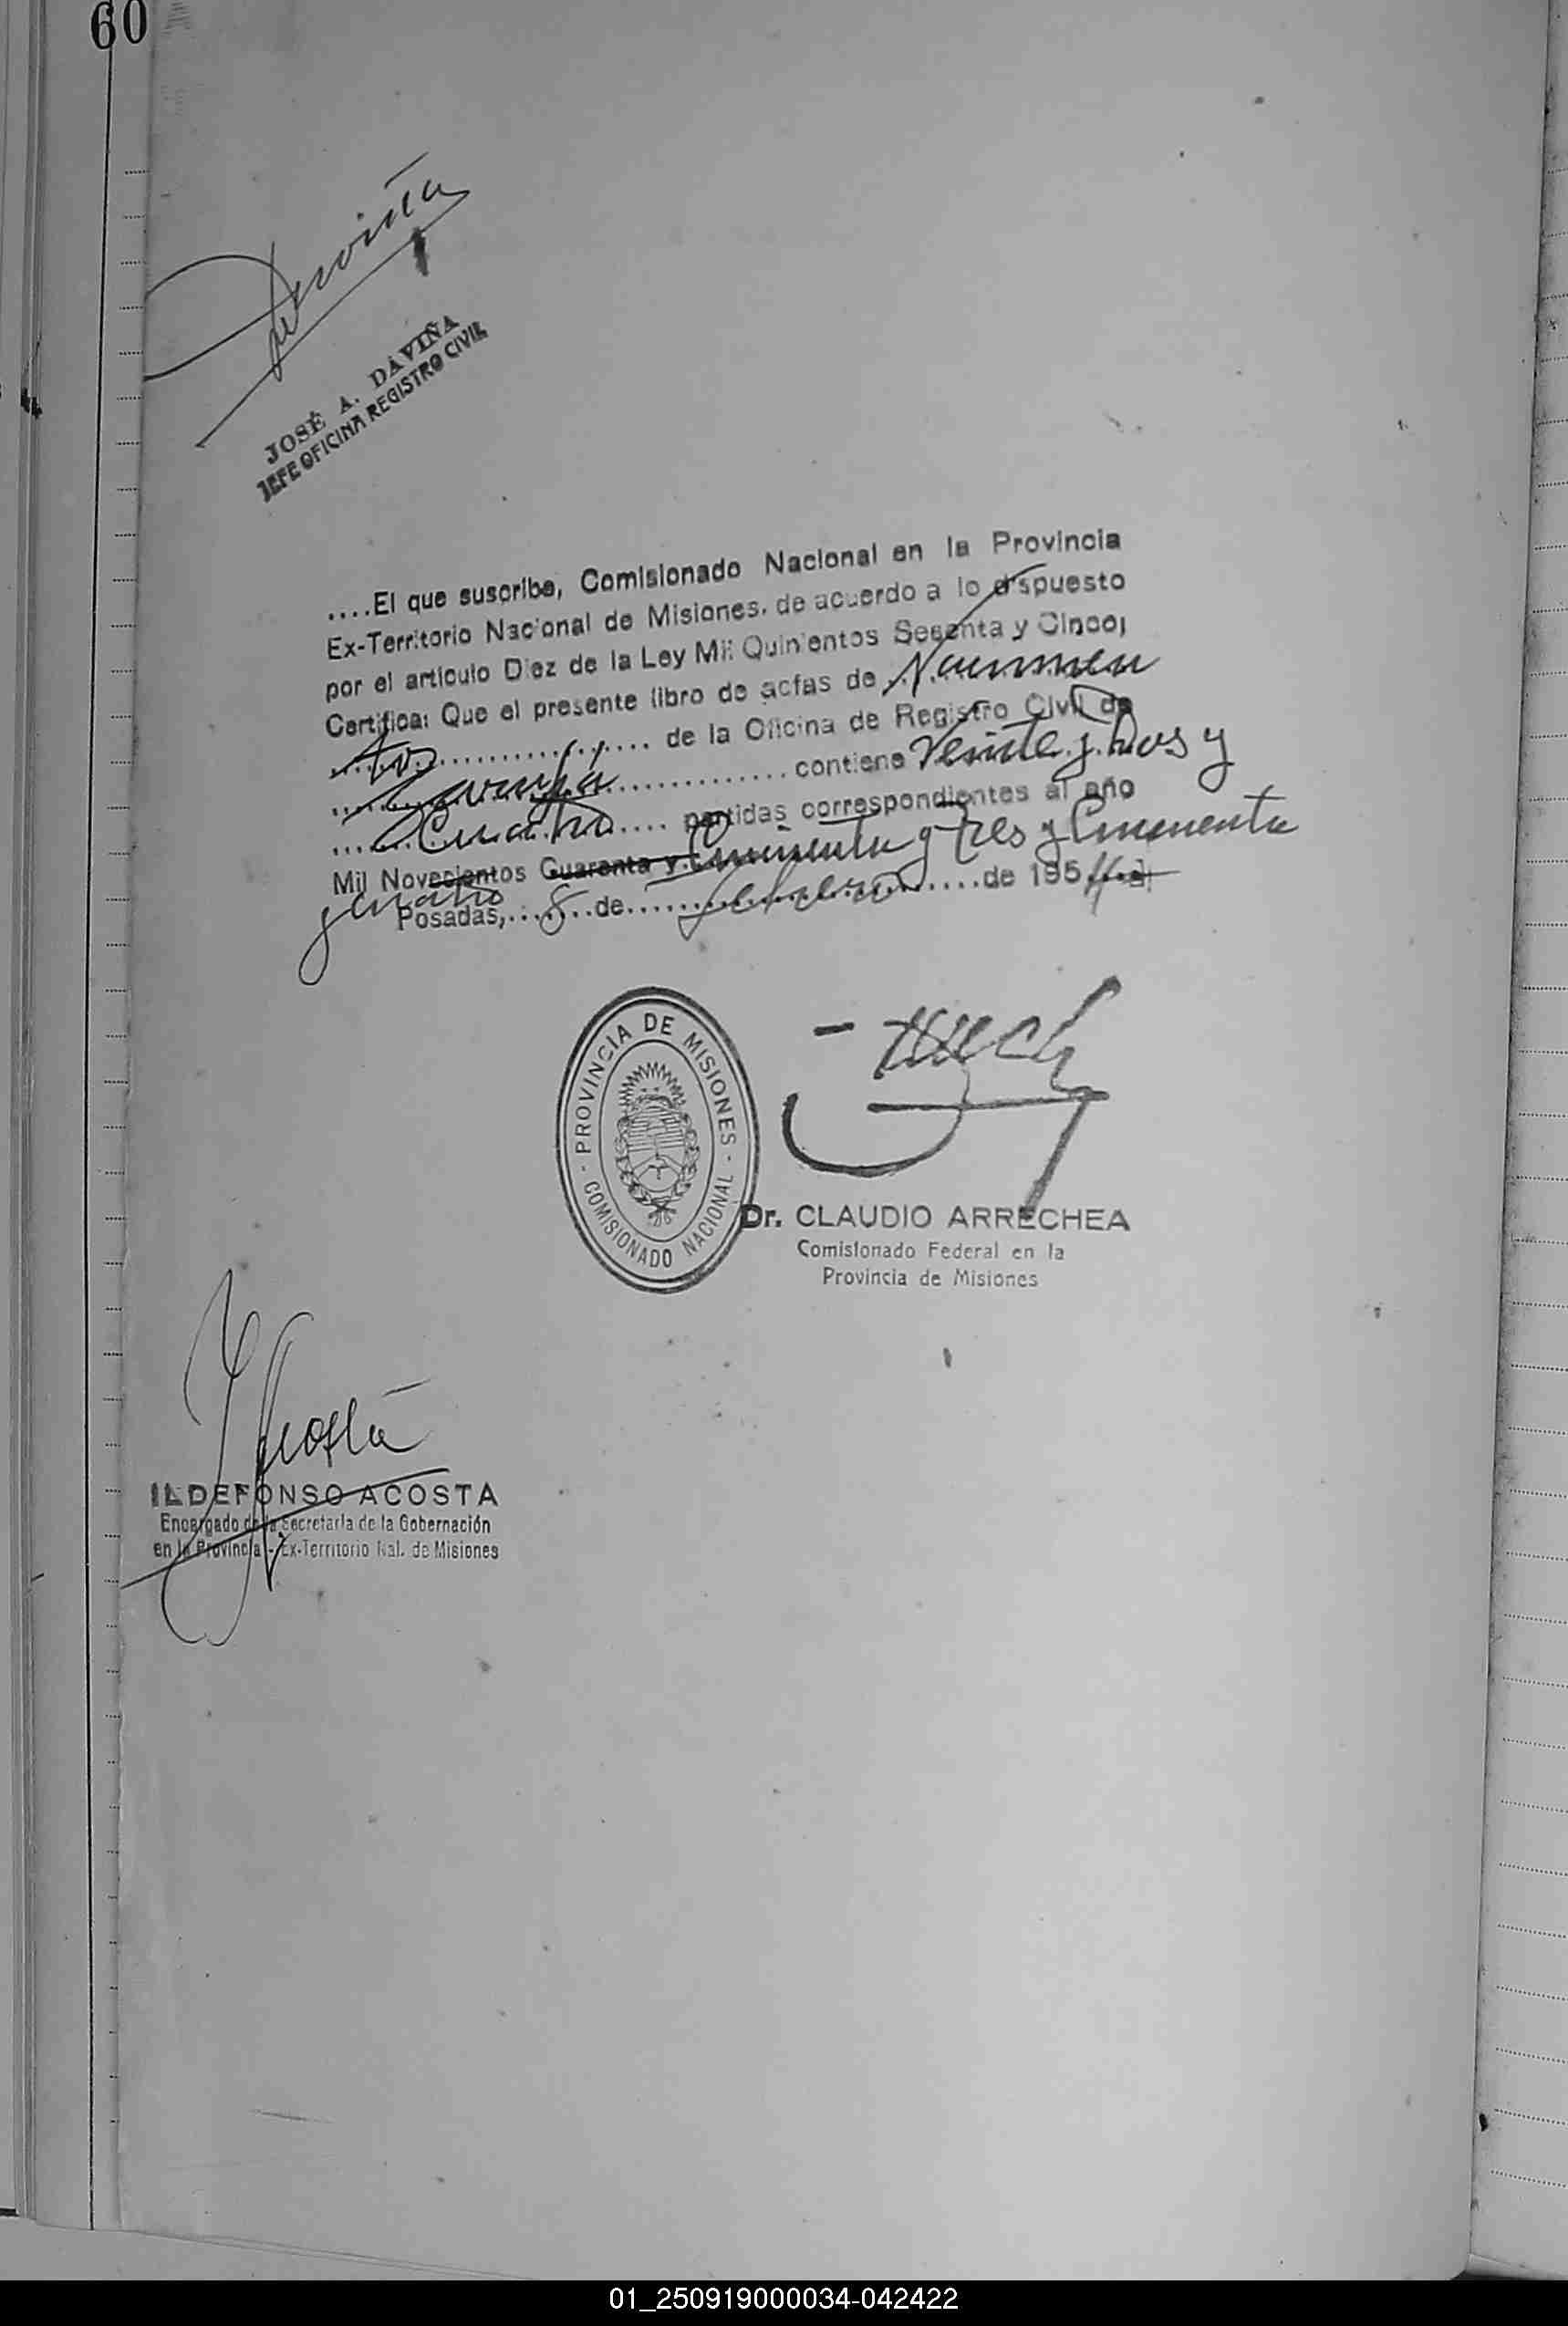 60
Daviña
JOSÉ A. DAVIÑA
JEFE OFICINA REGISTRO CIVIL
....El que suscribe, Comisionado Nacional en la Provincia
Ex-Territorio Nacional de Misiones, de acuerdo a lo dispuesto
por el articulo Diez de la Ley Mil Quinientos Sesenta y Cinco;
Certifica: Que el presente libro de actas de Nacimien
tos de la Oficina de Registro Civil de
contiene Veinte y Dos y
Cuatro partidas correspondientes al año
Mil Novecientos Cuarenta y Cincuenta y Tres y Cincuenta
y cuatro
Posadas, 8 de Febrero de 195
PROVINCIA DE MISIONES
COMISIONADO NACIONAL
Dr. CLAUDIO ARRECHEA
Comisionado Federal en la
Provincia de Misiones
Acosta
ILDEFONSO ACOSTA
Encargado de la Secretaria de la Gobernación
en la Provincia - Ex-Territorio Nal. de Misiones
01_250919000034-042422